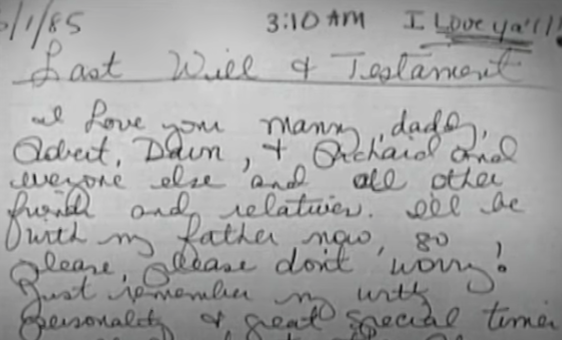 /1/85 3:10 AM I Love ya'll!
Last Will & Testament
I Love you mama, daddy,
Robert, Dawn, + Richard and
everyone else and all other
friends and relatives. I'll be
with my father now, so
please, please don't worry!
Just remember my witty
personality & great special times